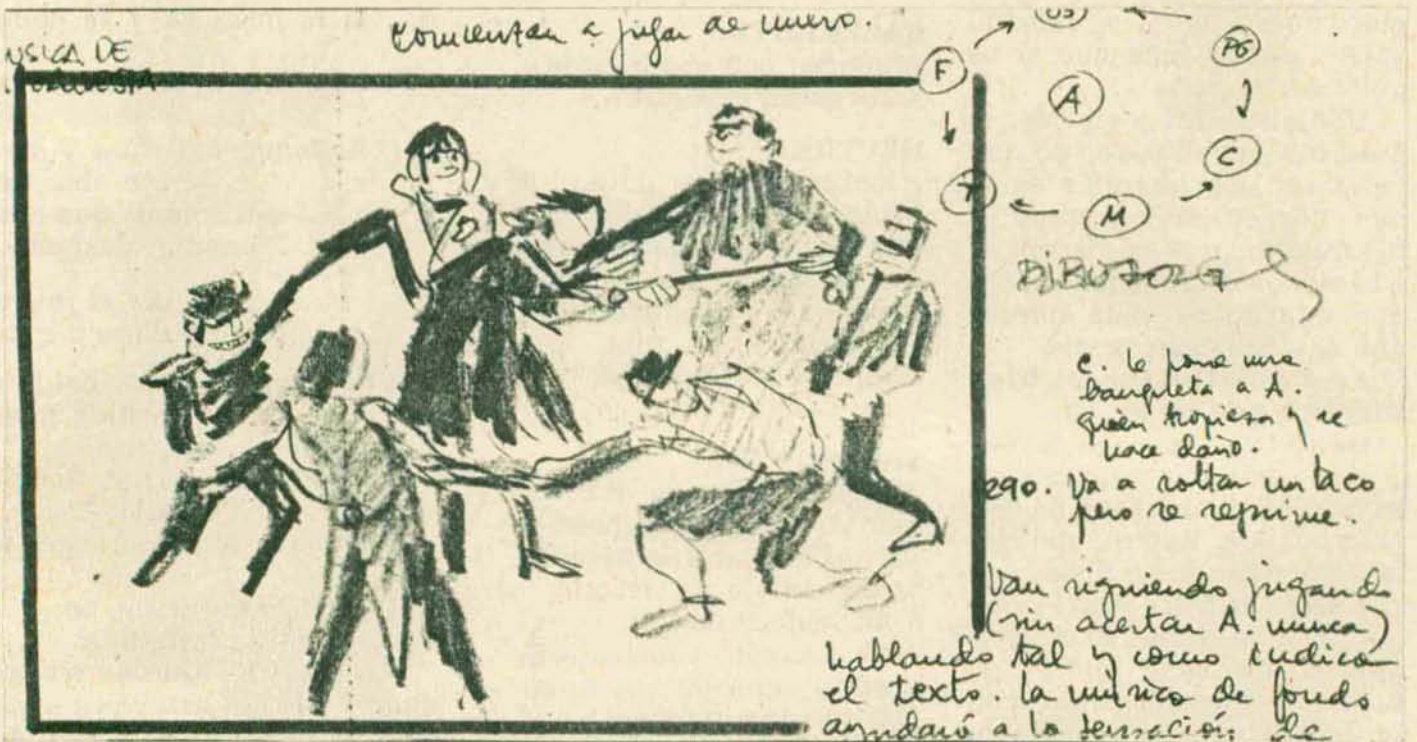 comienzan a jugar de nuevo.
USICA DE
F
PG
A
C
M
DIBUJO
C. le pone una
banqueta a A.
quien tropieza y se
hace daño.
ego. Va a soltar un taco
pero se reprime.
Van siguiendo jugando
(sin acertar A. nunca)
hablando tal y como indica
el texto. la música de fondo
ayudará a la sensación de